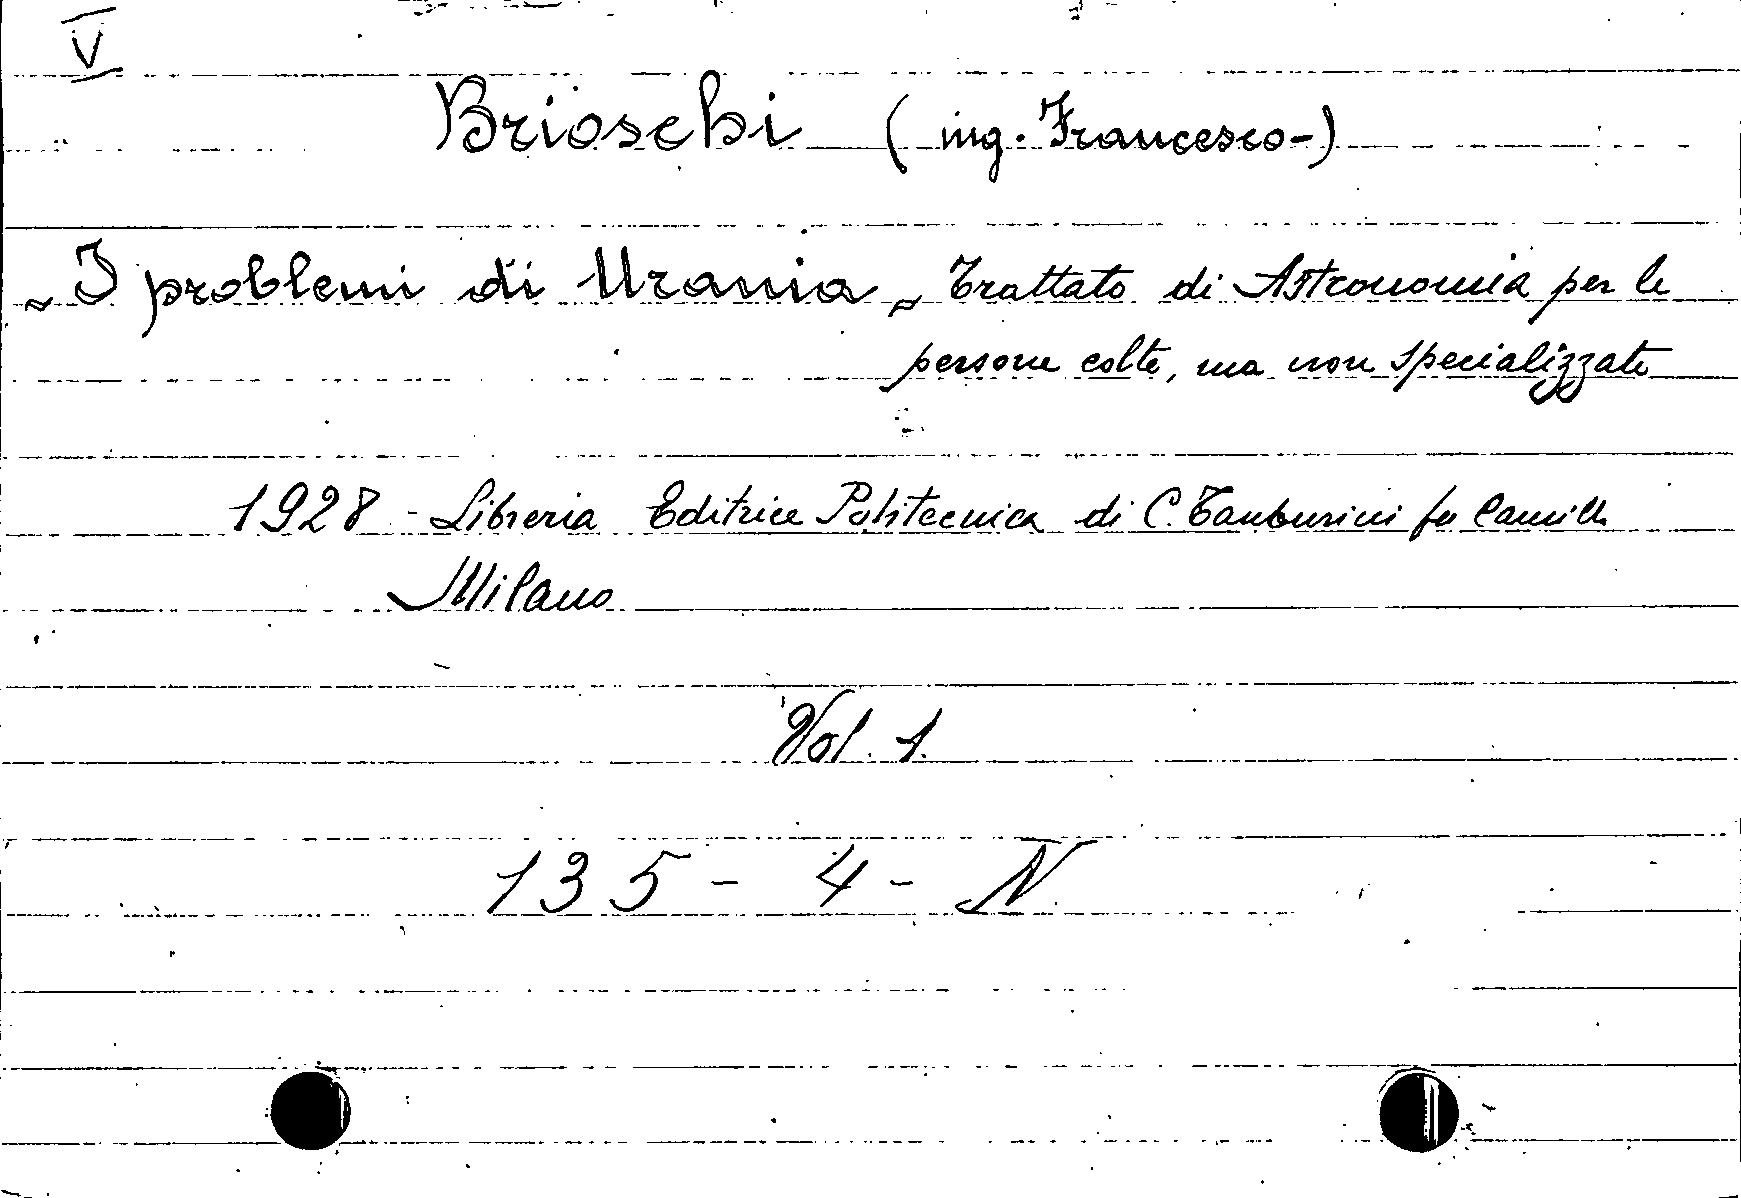 V
Brioschi (ing. Francesco-)
„I problemi di Urania„ Trattato di Astronomia per le
persone colte, ma non specializzate
1928 - Libreria Editrice Politecnica di C. Tamburini fu Camillo
Milano
Vol. 1.
135 - 4 - N.